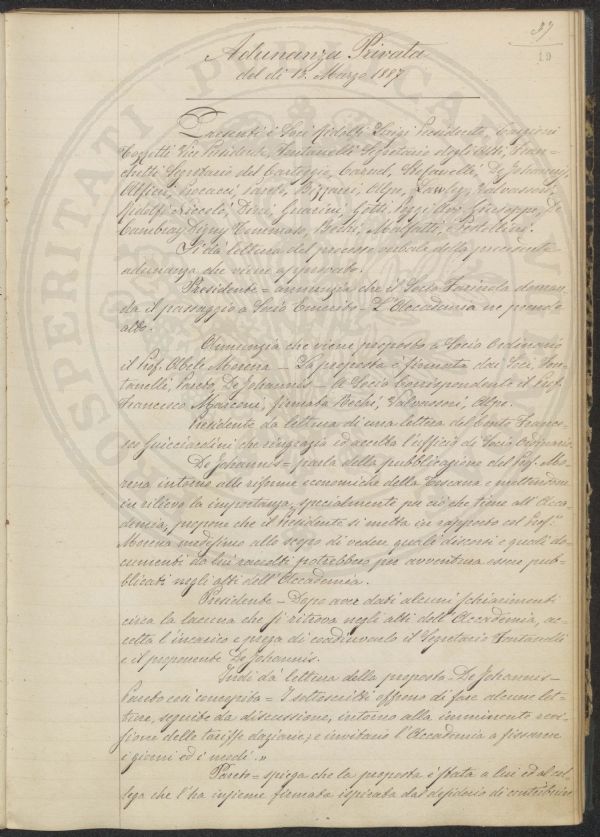 37
19
Adunanza Privata
del dì 13. Marzo 1887
Presenti i Soci Ridolfi Luigi Presidente,
Vice Presidente, Fontanelli Segretario degli Atti, Fran=
chetti Segretario del Carteggio, Caruel, Stefanelli, De Johannis,
Alfieri, Pareto, Bizzarri, Alpe, Lawley, Valvassori,
Ridolfi Niccolò, Dini, Guarini, Gotti, Poggi Avv. Giuseppe, De
Cambray Digny Tommaso, Bechi, Malfatti, Pestellini.
Si dà lettura del processo verbale della precedente
adunanza che viene approvato.
Presidente = annunzia che il Socio Farinola doman
da il passaggio a Socio Emerito – L'Accademia ne prende
atto.
Annunzia che viene proposto a Socio Ordinario
il Prof. Abele Morena – La proposta è firmata dai Soci Fon-
tanelli, Pareto, De Johannis – A Socio Corrispondente il Prof.
Francesco Marconi, firmata Bechi, Valvassori, Alpe.
Presidente da lettura di una lettera del Conte France-
sco Guicciardini che ringrazia ed accetta l'ufficio di Socio Ordinario.
De Johannis = parla della pubblicazione del Prof. Mo-
rena intorno alle riforme economiche della Toscana e mettendone
in rilievo la importanza, specialmente per ciò che tiene all'Acca-
demia, propone che il Presidente si metta in rapporto col Prof.
Morena medesimo allo scopo di vedere quali discorsi e quali do-
cumenti da lui raccolti potrebbero per avventura essere pub-
blicati negli atti dell'Accademia.
Presidente – Dopo aver dati alcuni schiarimenti
circa la lacuna che si ritrova negli atti dell'Accademia, ac-
cetta l'incarico e prega di coadiuvarlo il Segretario Fontanelli
e il proponente De Johannis.
Indi dà lettura della proposta – De Johannis –
Pareto così concepita = I sottoscritti offrono di fare alcune let-
ture, seguite da discussione, intorno alla imminente revi-
sione delle tariffe daziarie, e invitano l'Accademia a fissarne
i giorni ed i modi.»
Pareto = spiega che la proposta è stata a lui ed al col-
lega che l'ha insieme firmata ispirata dal desiderio di contribuire